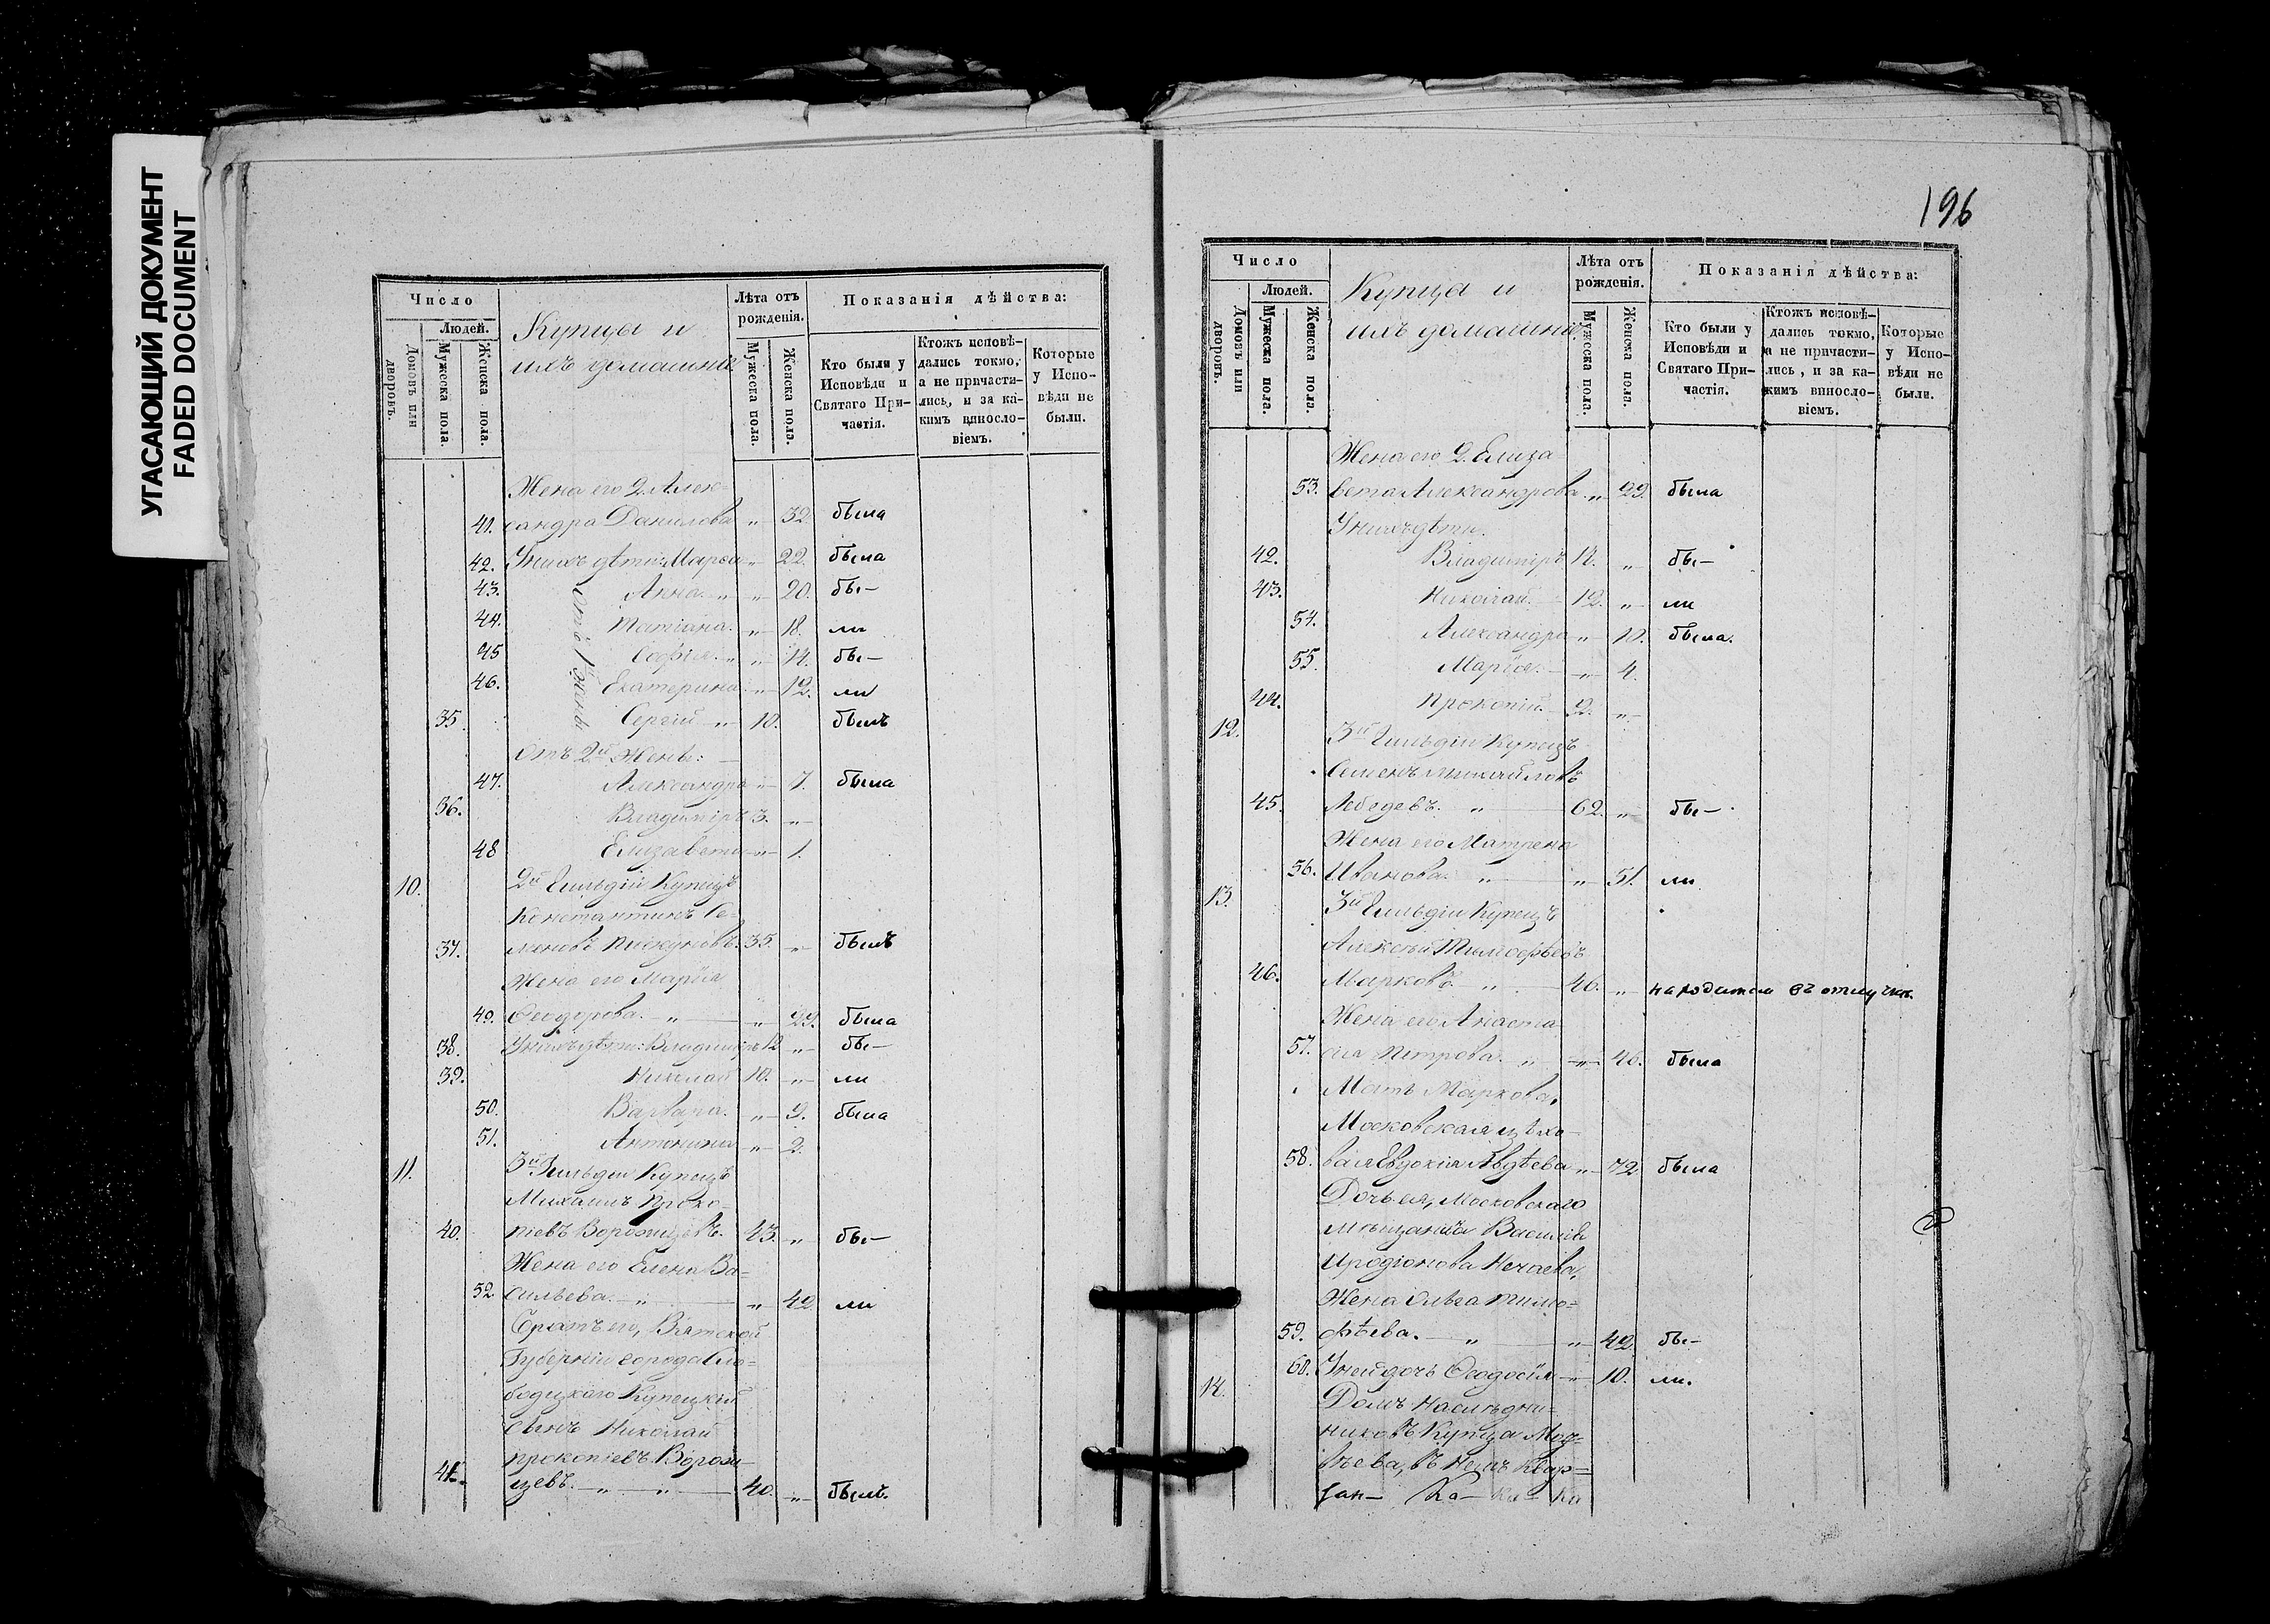 УГАСАЮЩИЙ ДОКУМЕНТ
FADED DOCUMENT
Число
Людей.
Домовъ или дворовъ.
Мужеска пола.
Женска пола.
Купцы и
ихъ домашніе
Лѣта отъ рожденія.
Мужеска пола.
Женска пола.
Показанія дѣйства:
Кто были у Исповѣди и Святаго Причастія.
Ктожъ исповѣдались токмо, а не причастились, и за какимъ винословіемъ.
Которые у Исповѣди не были.
Жена его 2. Алек=
41. сандра Данилова " 32. была
42. У нихъ дѣти: Марѳа " 22. была
отъ 1 жены
43. Анна. " " 20. бы-
44. Татіана. " 18. ли
45 Софія. " " 14. бы-
46. Екатерина " 12. ли
35. Сергій " 10. былъ
Отъ 2й Жены:
47. Александра " 7. была
36. Владиміръ 3. "
48 Елизавета " 1.
10. 2й Гильдіи Купецъ
Константинъ Се=
37. меновъ Пискуновъ. 35. " былъ
Жена его Марія
49. Ѳеодорова. " " 29. была
38. У нихъ дѣти: Владиміръ 12 " бы-
39. Николай 10. " ли
50. Варвара. " 9. была
51. Антонина " 2.
11. 3й Гильдіи Купецъ
Михаилъ Проко=
40. піевъ Воронцовъ. 43. " бы-
Жена его Елена Ва=
52 сильева. " " 42 ли
Братъ его, Вятской
Губерніи города Сло=
бодцкаго Купецкій
сынъ Николай
Прокопіевъ Ворон-
41. цевъ. " " 40. " былъ.
196
Число
Людей.
Домовъ или дворовъ.
Мужеска пола.
Женска пола.
Купцы и
ихъ домашніе.
Лѣта отъ рожденія.
Мужеска пола.
Женска пола.
Показанія дѣйства:
Кто были у Исповѣди и Святаго Причастія.
Ктожъ исповѣдались токмо, а не причастились, и за какимъ винословіемъ.
Которые у Исповѣди не были.
Жена его 2. Елиза
53. вета Александрова. " 29. была
У нихъ дѣти.
42. Владиміръ 14. " бы-
43. Николай. 12. " ли
54. Александра " 10. была.
55. Марія. " 4.
44. Прокопій. 2. "
12. 3й Гильдіи Купецъ
Семенъ Михайловъ
45. Лебедевъ. " 62. " бы-
Жена его Матрена
56. Иванова. " " 51. ли
13. 3й Гильдіи Купецъ
Алексѣй Тимоѳѣевъ
46. Марковъ. " 46. " находится въ отлучкѣ.
Жена его Анаста
57. сія Петрова. " " 40. была
Мать Маркова,
Московская цѣхо-
58. вая Евдокія Авдѣева " 72. была
Дочь ея, Московскаго
мѣщанина Василія
Иродіонова Нечаева,
Жена Ольга Тимо=
59. фѣева. " " 42. бы-
60. У ней дочь Ѳеодосія " 10. ли.
14. Домъ Наслѣдни=
никовъ Купца Мат=
вѣева, въ немъ квар=